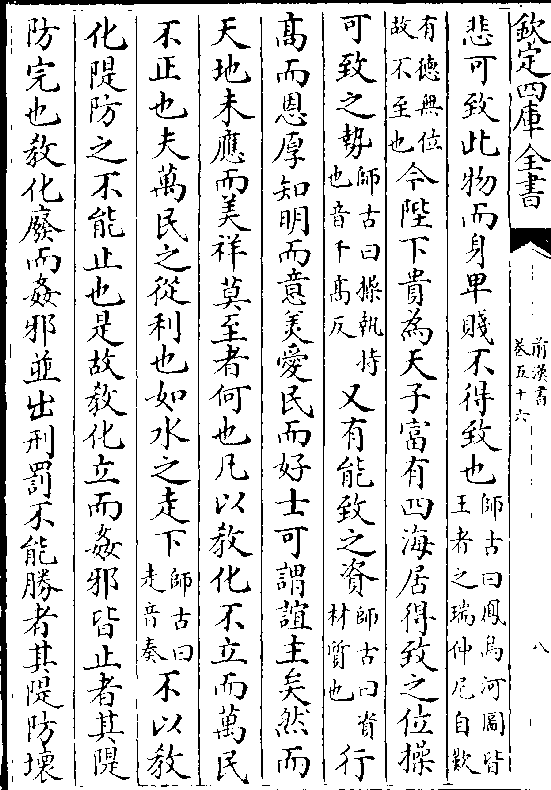 欽定四庫全書
前漢書
卷五十六
八
悲可致此物而身卑賤不得致也師古曰鳳鳥河圖皆王者之瑞仲尼自歎
有德無位故不至也今陛下貴為天子富有四海居得致之位操
可致之勢師古曰操執持也音千髙反又有能致之資師古曰資材質也行
髙而恩厚知明而意美愛民而好士可謂誼主矣然而
天地未應而美祥莫至者何也凡以教化不立而萬民
不正也夫萬民之從利也如水之走下師古曰走音奏不以教
化隄防之不能止也是故教化立而姦邪皆止者其隄
防完也教化廢而姦邪並出刑罰不能勝者其隄防壞